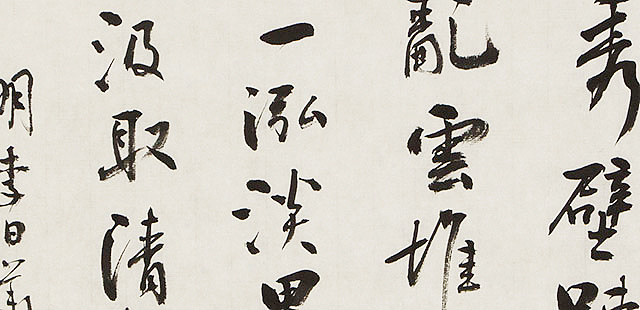 秀壁
亂雲堆
一泓淡
汲取清
明李日華